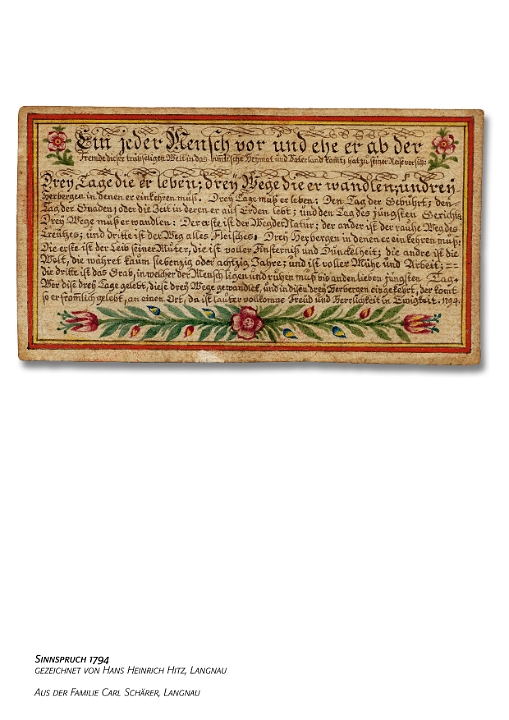 Ein jeder Mensch vor und ehe er ab der
Fremde dieser trübseligen Welt in das himlische Heymat und Vaterland komt; hat zu seiner Reise vor sich:
Drey Tage die er leben; drey Wege die er wandlen; und drey
Herbergen in denen er einkehren muß. Drey Tage muß er leben: Den Tag der Gebuhrt; den
Tag der Gnaden; oder die Zeit in deren er auf Erden lebt; und den Tag des jüngsten Gerichts
Drey Wege muß er wandlen: Der erste ist der Weg der Natur; der ander ist der rauhe Weg des
Creutzes; und dritte ist der Weg alles Fleisches. Drey Herbergen in denen er ein kehren muß:
Die erste ist der Leib seiner Muter, die ist voller Finsterniß und Dunckelheit; die andre ist die
Welt, die währet kaum siebenzig oder achtzig Jahre; und ist voller Mühe und Arbeit; =
die dritte ist das Grab, in welcher der Mensch ligen und ruhen muß bis an den lieben jüngsten Tag.
Wer dise drey Tage gelebt, diese drey Wege gewandlet, und in disen drey Herbergen eingekehrt, der komt
so er fromlich gelebt, an einen Ort, da ist lauter vollkomne Freud und Herrlichkeit in Ewigkeit. 1794.
SINNSPRUCH 1794
GEZEICHNET VON HANS HEINRICH HITZ, LANGNAU
AUS DER FAMILIE CARL SCHÄRER, LANGNAU